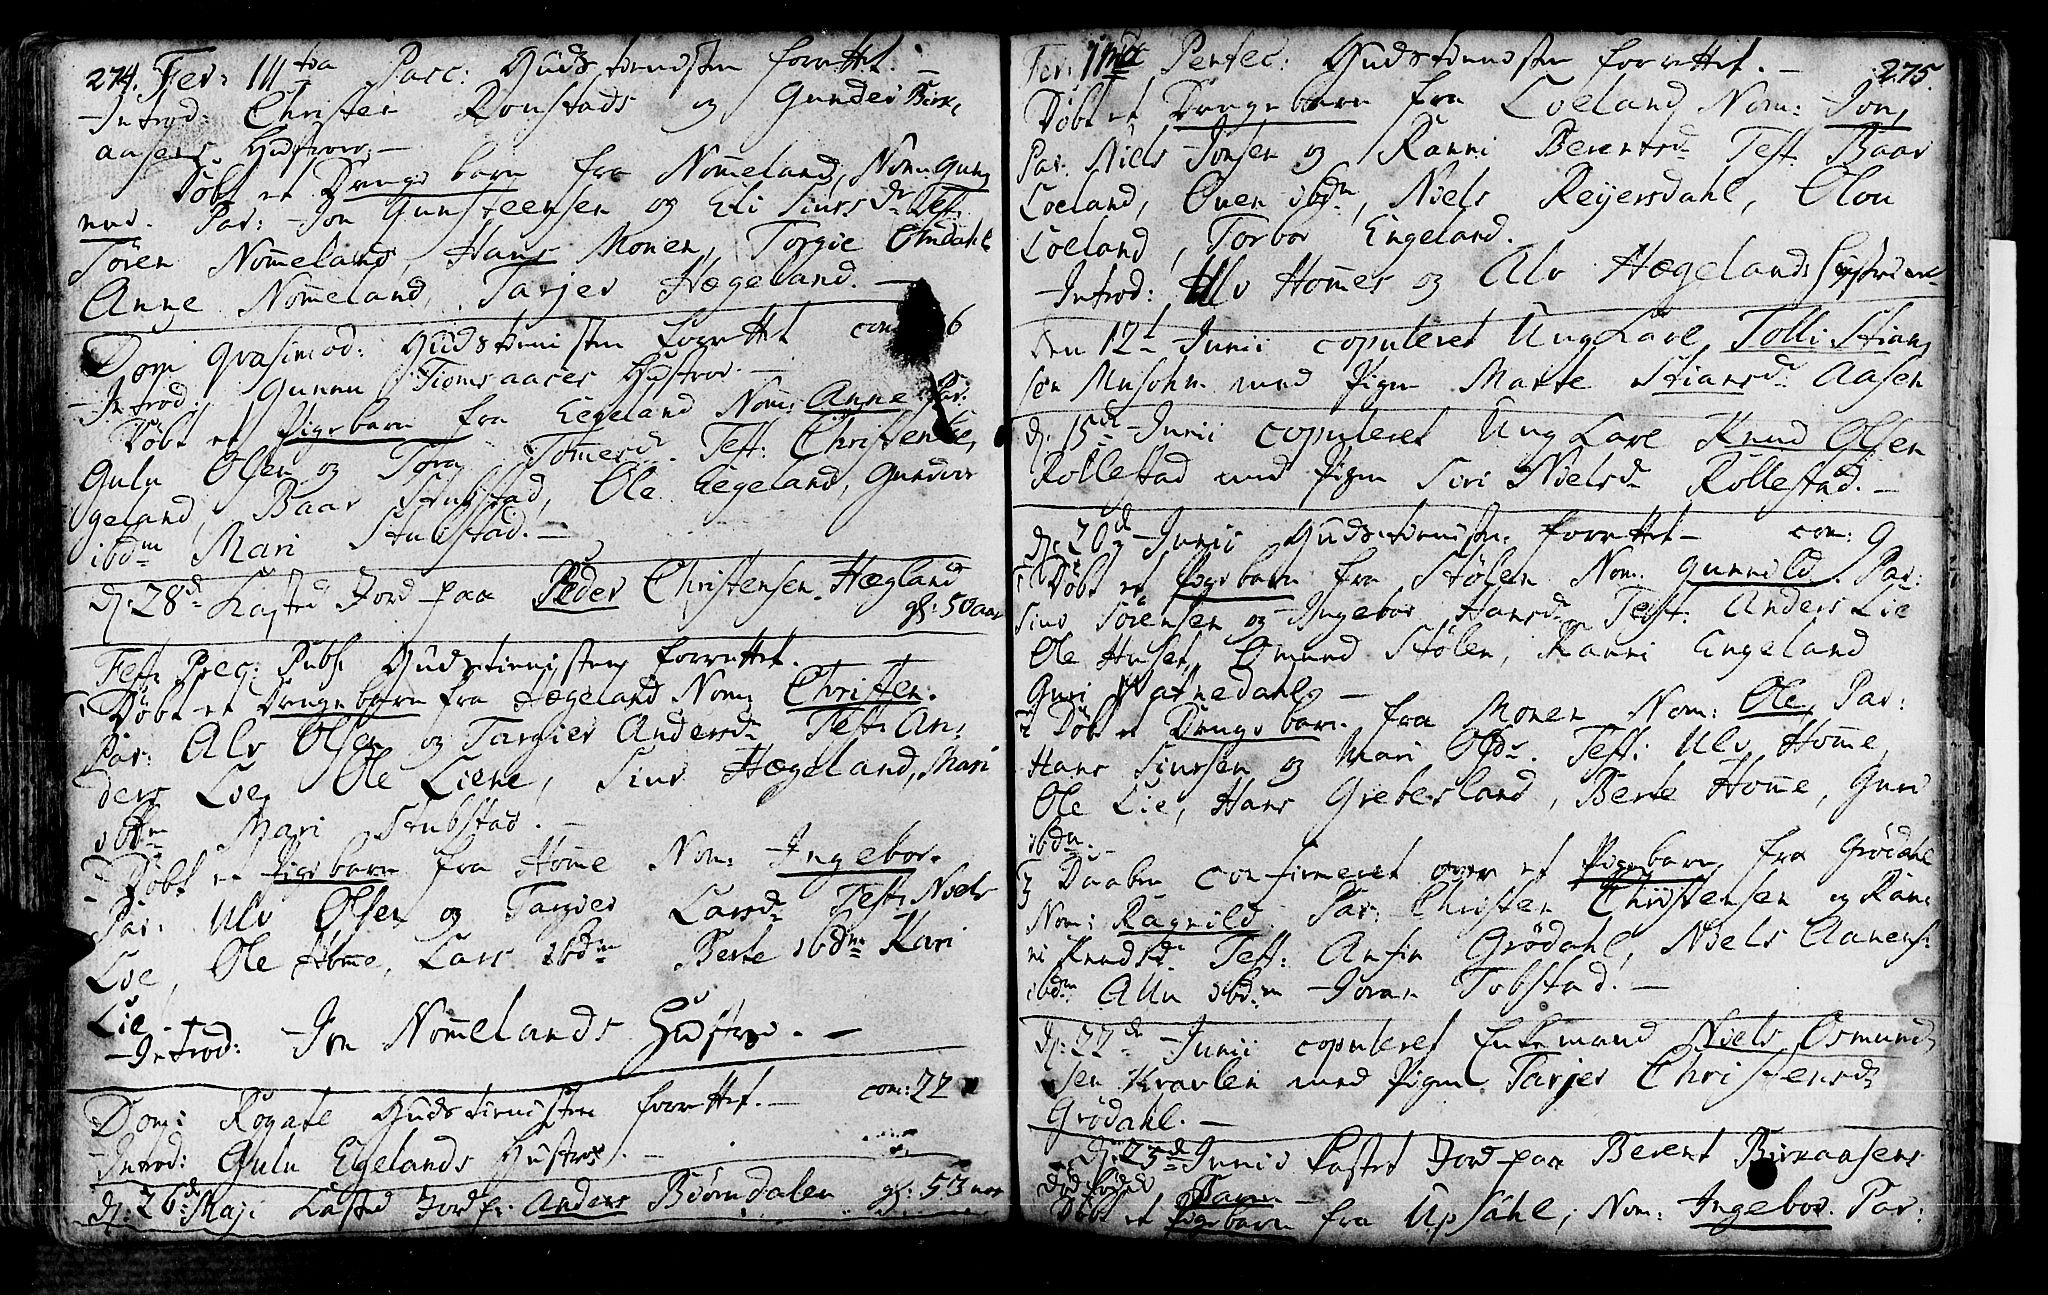 274. Fer: III tia Pasc: Gudstienesten forrettet. —
Introd: Christen Ronstads og Gunder Birk,
aasens Hustroer. —
Døbt et Drengebarn fra Nomeland, Nom: Gun,
nu. Par: Jon Gunsteensen og Eli Siursdr Test:
Tören Nomeland, Hans Monen, Torgie Omdahl
Anne Nomeland, Tarjer Hægeland. —
Dom qvasimod: Gudstienisten forrettet com: 6
Introd. Gunnu Tiomsaases Hustroe. —
Döbt et Pigebarn fra Eegeland Nom: Anne Par:
Gulu Olsen og Tora Tomesd. Test: Christen Ee,
geland, Baar Stubstad, Ole Eegeland, Gundvor
ibdm Mari Stubstad. —
d. 28de Kasted Jord paa Peder Christensen Hægland
gl: 50 aar
Fest: Prec: Publ: Gudstienisten forrettet.
1 Döbt et Drengebarn fra Hægeland Nom: Christen.
Par: Alv Olsen og Targier Andersdr Test: An,
ders Loe, Ole Liene, Siur Hægeland, Mari
ibdm Mari Stubstad. —
2 Döbt et Pigebarn fra Home Nom: Ingebor.
Par: Ulv Olsen og Targier Larsdr Test: Niels
Loe, Ole Home, Lars ibdm Berte ibdm Kari
Lie. —
Introd: Jon Nomelands Hustroe. —
Dom: Rogate Gudstienisten forrettet. — com: 22
Introd: Gulu Egelands Hustroe. —
d: 26de Maji Kasted Jord p: Anders Biörndalen gl: 53 aar
Fer: IInda Pentec: Gudstienesten forrettet. — 275.
Döbt et Drengebarn fra Loeland, Nom: Jon,
Par: Niels Jonsen og Ranni Berentsdr Test Baar
Loeland, Oven ibdm, Niels Reyersdahl, Olou
Loeland, Torbor Engeland.
Introd: Ulv Homes og Alv Hægelands Hustruer
Den 12t Junii copuleret Ung Karl Tolli Stian,
sen Musohm med Pigen Marte Stiansdr Aasen
d. 15de Junii copuleret Ung Karl Knud Olsen
Röllestad med Pigen Siri Nielsdr Röllestad. —
d. 20de Junii Gudstienisten forrettet — com: 9
1 Döbt et Pigebarn fra Stölen Nom. Gunnild. Par:
Siur Sörensen og Ingebor Hansdr Test: Anders Lie
Ole Huset, Omund Stölen, Ranni Engeland
Guri Vatnedahl —
2 Döbt et Drengebarn fra Monen Nom: Ole, Par:
Hans Siursen og Mari Olsdr. Test: Ulv Home,
Ole Lie, Hans Grebesland, Berte Home, Guri
ibdm. —
3 Daaben confirmeret over et Pigebarn fra Grödahl
Nom: Ragnild. Par: Christen Christensen og Ran,
ni Knudsd. Test: Anfin Grödahl, Niels Aanens:
ibdm Allu ibdm Joran Tobstad. —
d: 22de Junii copuleret Enkemand Niels Osmund,
sen Kravlen med Pigen Tarjer Christensdr
Grödahl. —
d. 25de Junii Kastet Jord paa Berent Birkaasens
dödfödde Barn
Döbt et Pigebarn fra Upsahl, Nom: Ingebor. Par: